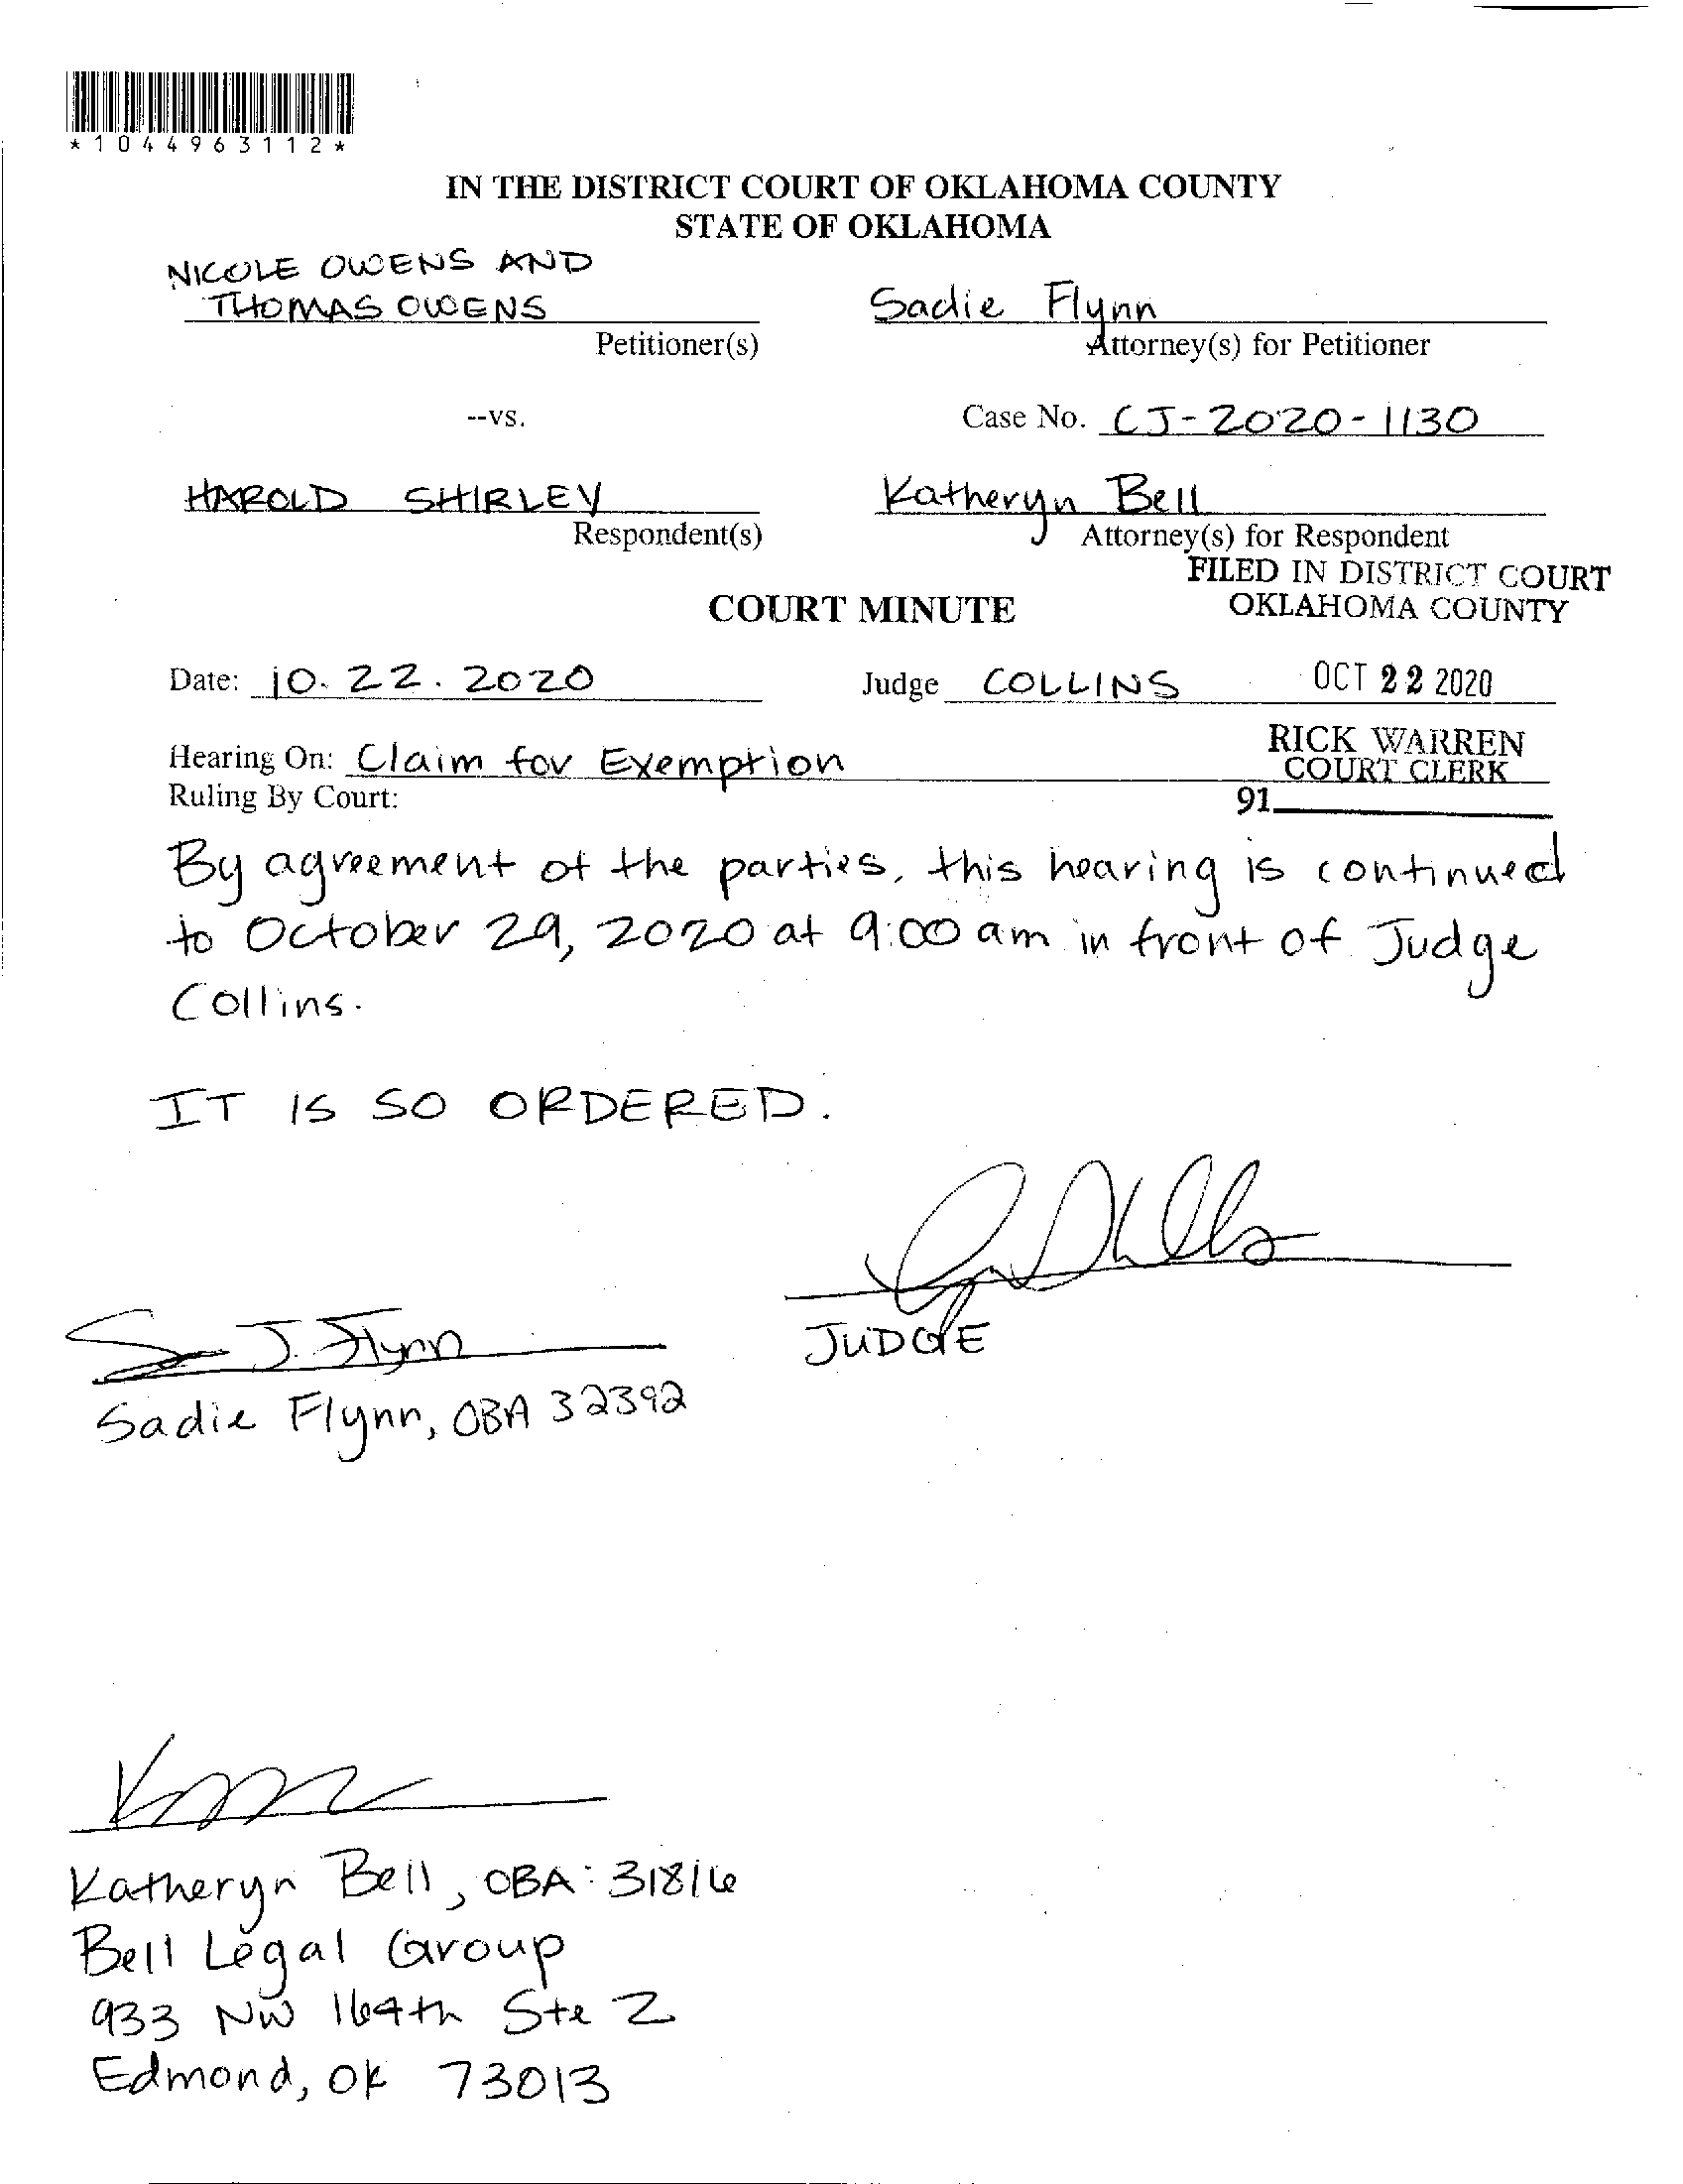 *1044963112*
IN THE DISTRICT COURT OF OKLAHOMA COUNTY
STATE OF OKLAHOMA
NICOLE OWENS AND
THOMAS OWENS
Petitioner(s)
Sadie Flynn
Attorney(s) for Petitioner
--vs.
Case No. CJ-2020-1130
HAROLD SHIRLEY
Respondent(s)
Katheryn Bell
Attorney(s) for Respondent
FILED IN DISTRICT COURT
OKLAHOMA COUNTY
COURT MINUTE
Date: 10.22.2020
Judge COLLINS
OCT 22 2020
Hearing On: Claim for Exemption
RICK WARREN
COURT CLERK
Ruling By Court:
91
By agreement of the parties, this hearing is continued
to October 29, 2020 at 9:00 am in front of Judge
Collins.
IT IS SO ORDERED.
JUDGE
S J. Flynn
Sadie Flynn, OBA 32392
Katheryn Bell, OBA: 31816
Bell Legal Group
933 NW 164th Ste 2
Edmond, OK 73013